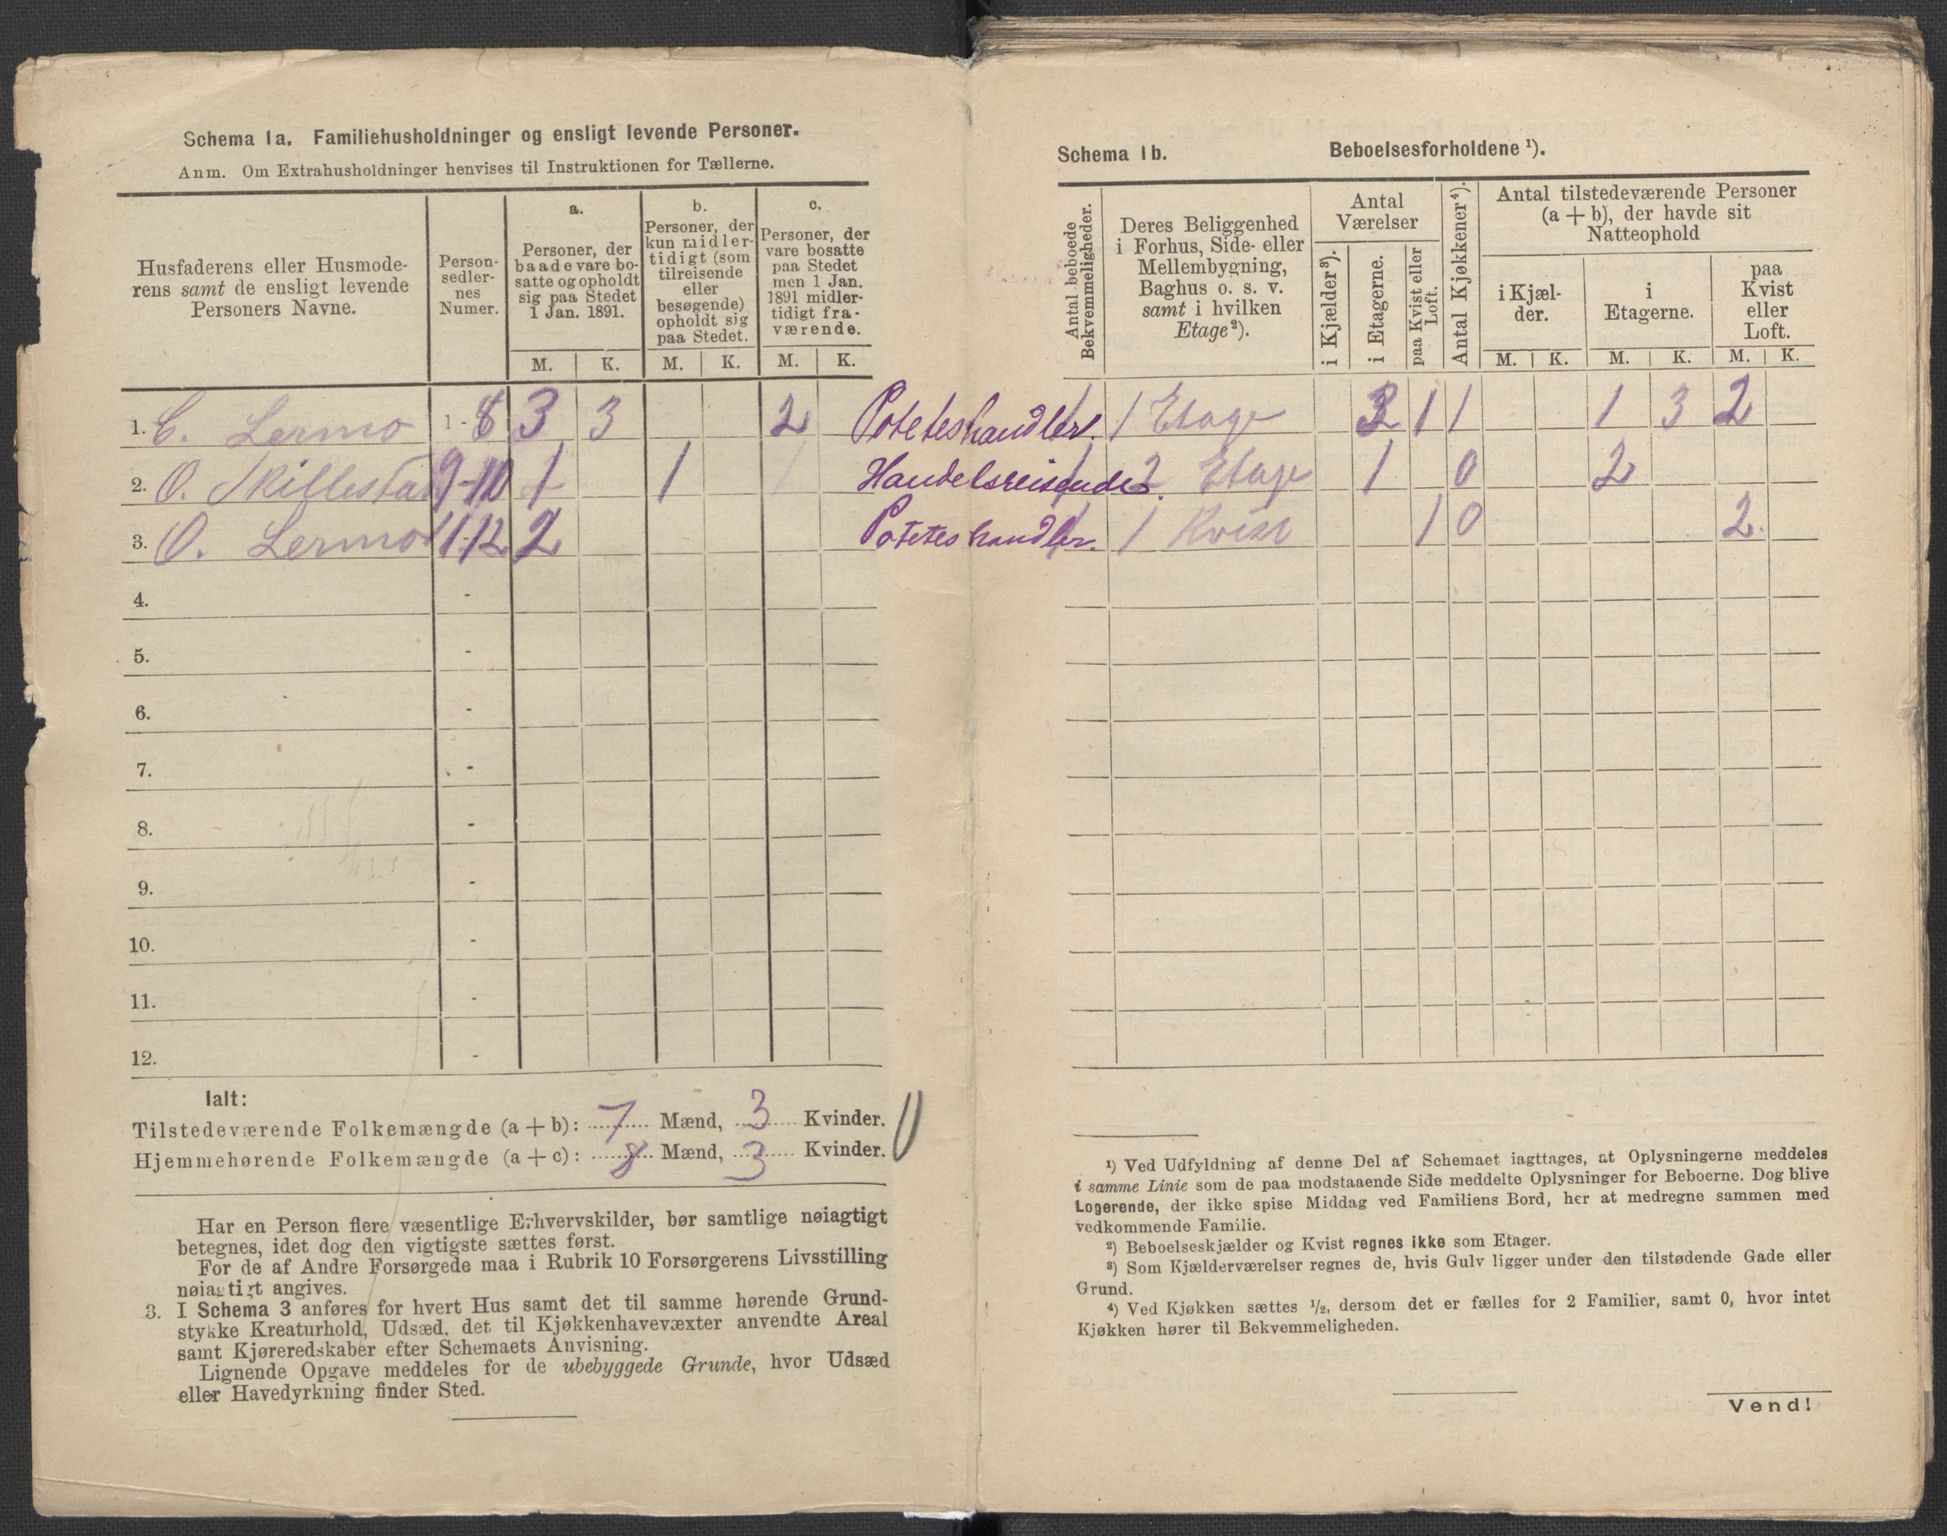 Schema 1a. Familiehusholdninger og ensligt levende Personer.
Anm. Om Extrahusholdninger henvises til Instruktionen for Tællerne.
Husfaderens eller Husmode-
rens samt de ensligt levende
Personers Navne.
Person-
sedler-
nes
Numer.
a.
Personer, der
baade vare bo-
satte og opholdt
sig paa Stedet
1 Jan. 1891.
b.
Personer, der
kun midler-
tidigt (som
tilreisende
eller
besøgende)
opholdt sig
paa Stedet.
c.
Personer, der
vare bosatte
paa Stedet
men 1 Jan.
1891 midler-
tidigt fra-
værende.
M. K. M. K. M. K.
1. C. Lermo 1-8 3 3 2
2. O. Skillestad 9-10 1 1 1
3. O. Lermo 11-12 2
4. -
5. -
6. -
7. -
8. -
9. -
10. -
11. -
12. -
Ialt:
Tilstedeværende Folkemængde (a+b): 7 Mænd, 3 Kvinder.
Hjemmehørende Folkemængde (a+c): 8 Mænd, 3 Kvinder.
Har en Person flere væsentlige Erhvervskilder, bør samtlige nøiagtigt
betegnes, idet dog den vigtigste sættes først.
For de af Andre Forsørgede maa i Rubrik 10 Forsørgerens Livsstilling
nøiagtigt angives.
3. I Schema 3 anføres for hvert Hus samt det til samme hørende Grund-
stykke Kreaturhold, Udsæd, det til Kjøkkenhavevæxter anvendte Areal
samt Kjøreredskaber efter Schemaets Anvisning.
Lignende Opgave meddeles for de ubebyggede Grunde, hvor Udsæd
eller Havedyrkning finder Sted.
Schema 1b. Beboelsesforholdene ¹).
Antal beboede
Bekvemmeligheder.
Deres Beliggenhed
i Forhus, Side- eller
Mellembygning,
Baghus o. s. v.
samt i hvilken
Etage²).
Antal
Værelser
i Kjælder³).
i Etagerne.
paa Kvist eller
Loft.
Antal Kjøkkener⁴).
Antal tilstedeværende Personer
(a+b), der havde sit
Natteophold
i Kjæl-
der.
i
Etagerne.
paa
Kvist
eller
Loft.
M. K. M. K. M. K.
Poteteshandler. 1 1 Etage 3 1 1 1 3 2
Handelsreisende. 1 2 Etage 1 0 2
Poteteshandler. 1 1 Kvist 1 0 2
¹) Ved Udfyldning af denne Del af Schemaet iagttages, at Oplysningerne meddeles
i samme Linie som de paa modstaaende Side meddelte Oplysninger for Beboerne. Dog blive
Logerende, der ikke spise Middag ved Familiens Bord, her at medregne sammen med
vedkommende Familie.
²) Beboelseskjælder og Kvist regnes ikke som Etager.
³) Som Kjælderværelser regnes de, hvis Gulv ligger under den tilstødende Gade eller
Grund.
⁴) Ved Kjøkken sættes ½, dersom det er fælles for 2 Familier, samt 0, hvor intet
Kjøkken hører til Bekvemmeligheden.
Vend!